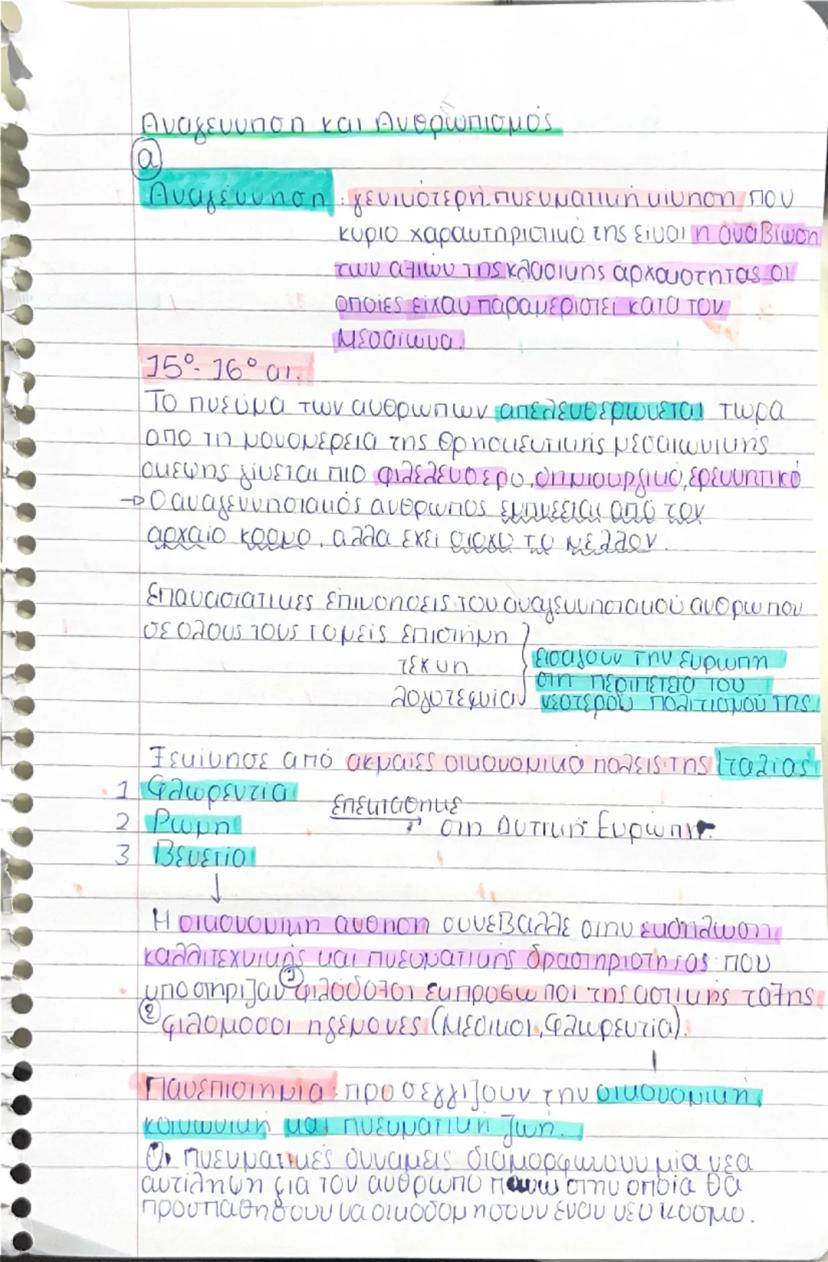 Αναγέννηση και Ανθρωπισμός
α
Αναγέννηση : γενικότερη πνευματική κίνηση που
κύριο χαρακτηριστικό της είναι η αναβίωση
των αξιών της κλασικής αρχαιότητας οι
οποίες είχαν παραμεριστεί κατά τον
Μεσαίωνα.
15ο - 16ο αι.
Το πνεύμα των ανθρώπων απελευθερώνεται τώρα
από τη μονομέρεια της θρησκευτικής μεσαιωνικής
σκέψης γίνεται πιο φιλελεύθερο, δημιουργικό, ερευνητικό
→ Ο αναγεννησιακός άνθρωπος εμπνέεται από τον
αρχαίο κόσμο, αλλά έχει στόχο το μέλλον.
Επαναστατικές επινοήσεις του αναγεννησιακού ανθρώπου
σε όλους τους τομείς επιστήμη
τέχνη
λογοτεχνία
εισάγουν την Ευρώπη
στη περιπέτεια του
νεότερου πολιτισμού της
Ξεκίνησε από ακμαίες οικονομικά πόλεις της Ιταλίας
1 Φλωρεντία
2 Ρώμη
3 Βενετία
επεκτάθηκε
→ στη Δυτική Ευρώπη.
Η οικονομική άνθηση συνέβαλλε στην εκδήλωση
καλλιτεχνικής και πνευματικής δραστηριότητας που
υποστήριζαν ① φιλόδοξοι εκπρόσωποι της αστικής τάξης
② φιλόμουσοι ηγεμόνες (Μέδικοι, Φλωρεντία).
Πανεπιστήμια προσεγγίζουν την οικονομική,
κοινωνική και πνευματική ζωή.
Οι πνευματικές δυνάμεις διαμορφώνουν μία νέα
αντίληψη για τον άνθρωπο πάνω στην οποία θα
προσπαθήσουν να οικοδομήσουν έναν νέο κόσμο.